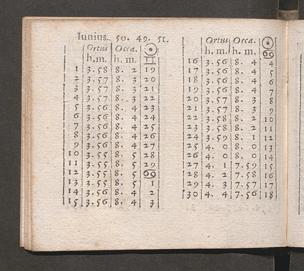 Iunius. 50. 49. 51.
Ortus Occa. ☉
h. m. h. m. II
1 3.58 8. 2 19
2 3.57 8. 3 20
3 3.57 8. 3 21
4 3.57 8. 3 22
5 3.56 8. 4 23
6 3.56 8. 4 24
7 3.56 8. 4 25
8 3.56 8. 4 26
9 3.55 8. 5 27
10 3.55 8. 5 28
11 3.55 8. 5 29
12 3.55 8. 5 ♋
13 3.55 8. 5 1
14 3.56 8. 4 2
15 3.56 8. 4 3
Ortus Occa. ☉
h. m. h. m. ♋
16 3.56 8. 4 4
17 3.56 8. 4 5
18 3.56 8. 4 6
19 3.56 8. 4 7
20 3.57 8. 3 8
21 3.57 8. 3 9
22 3.58 8. 2 10
23 3.58 8. 2 11
24 3.59 8. 1 12
25 4. 0 8. 0 13
26 4. 0 8. 0 14
27 4. 1 7.59 15
28 4. 2 7.58 16
29 4. 3 7.57 17
30 4. 4 7.56 18